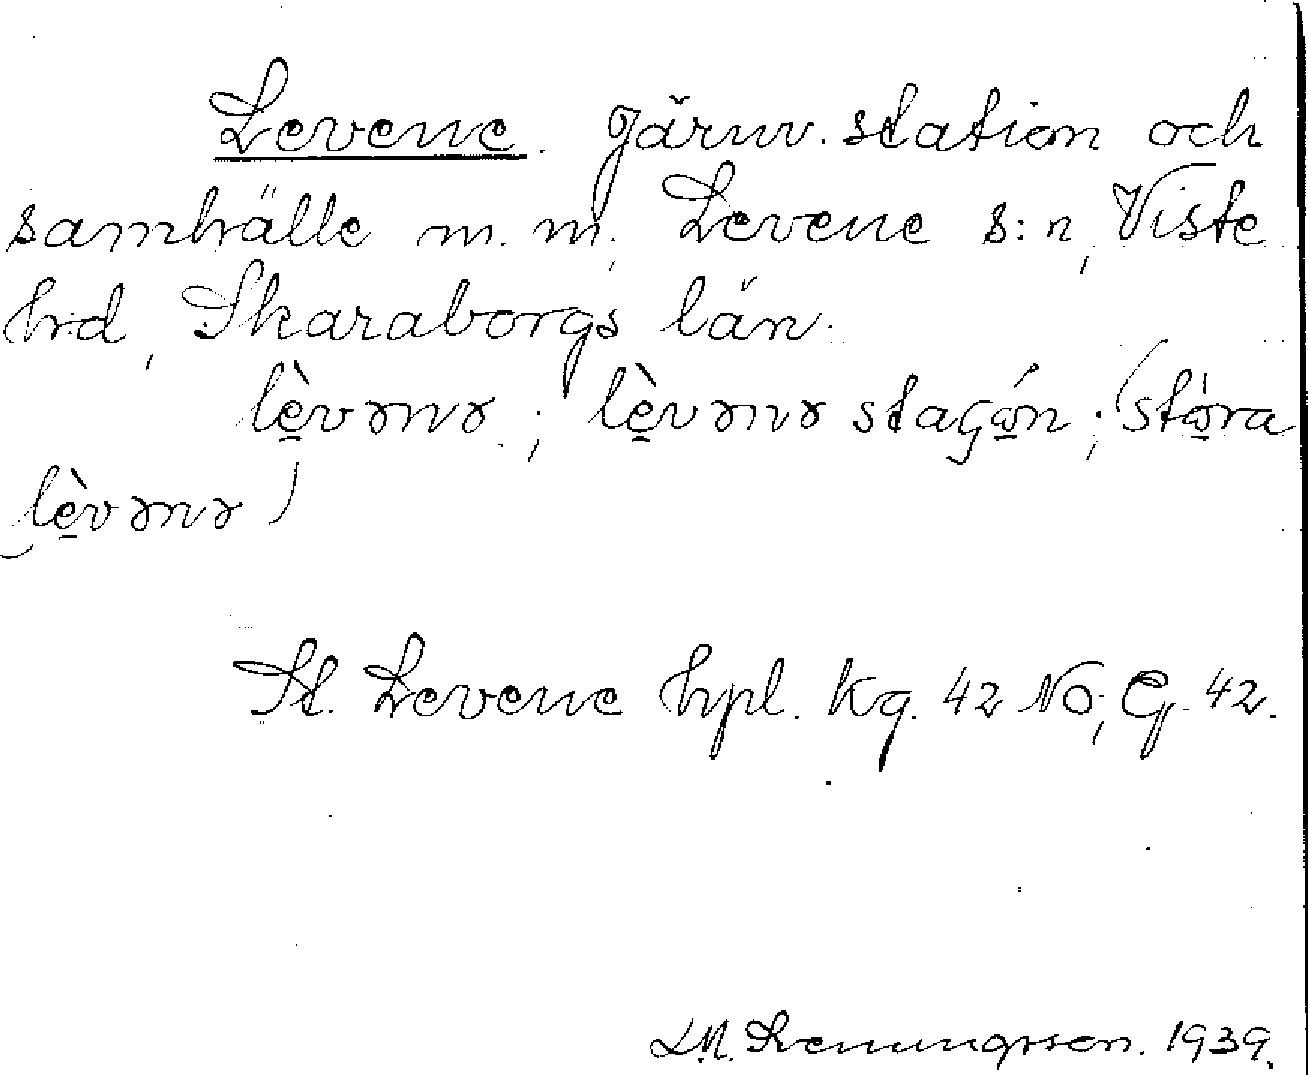 Levene. Järnv. station och
samhälle m. m., Levene s:n, Viste
hrd, Skaraborgs län.
lè̠vənə.; lè̠vənə staʃó̠n; (stò̠ra
lè̠vənə)
St. Levene hpl. Kg. 42 NO; G. 42.
1939.